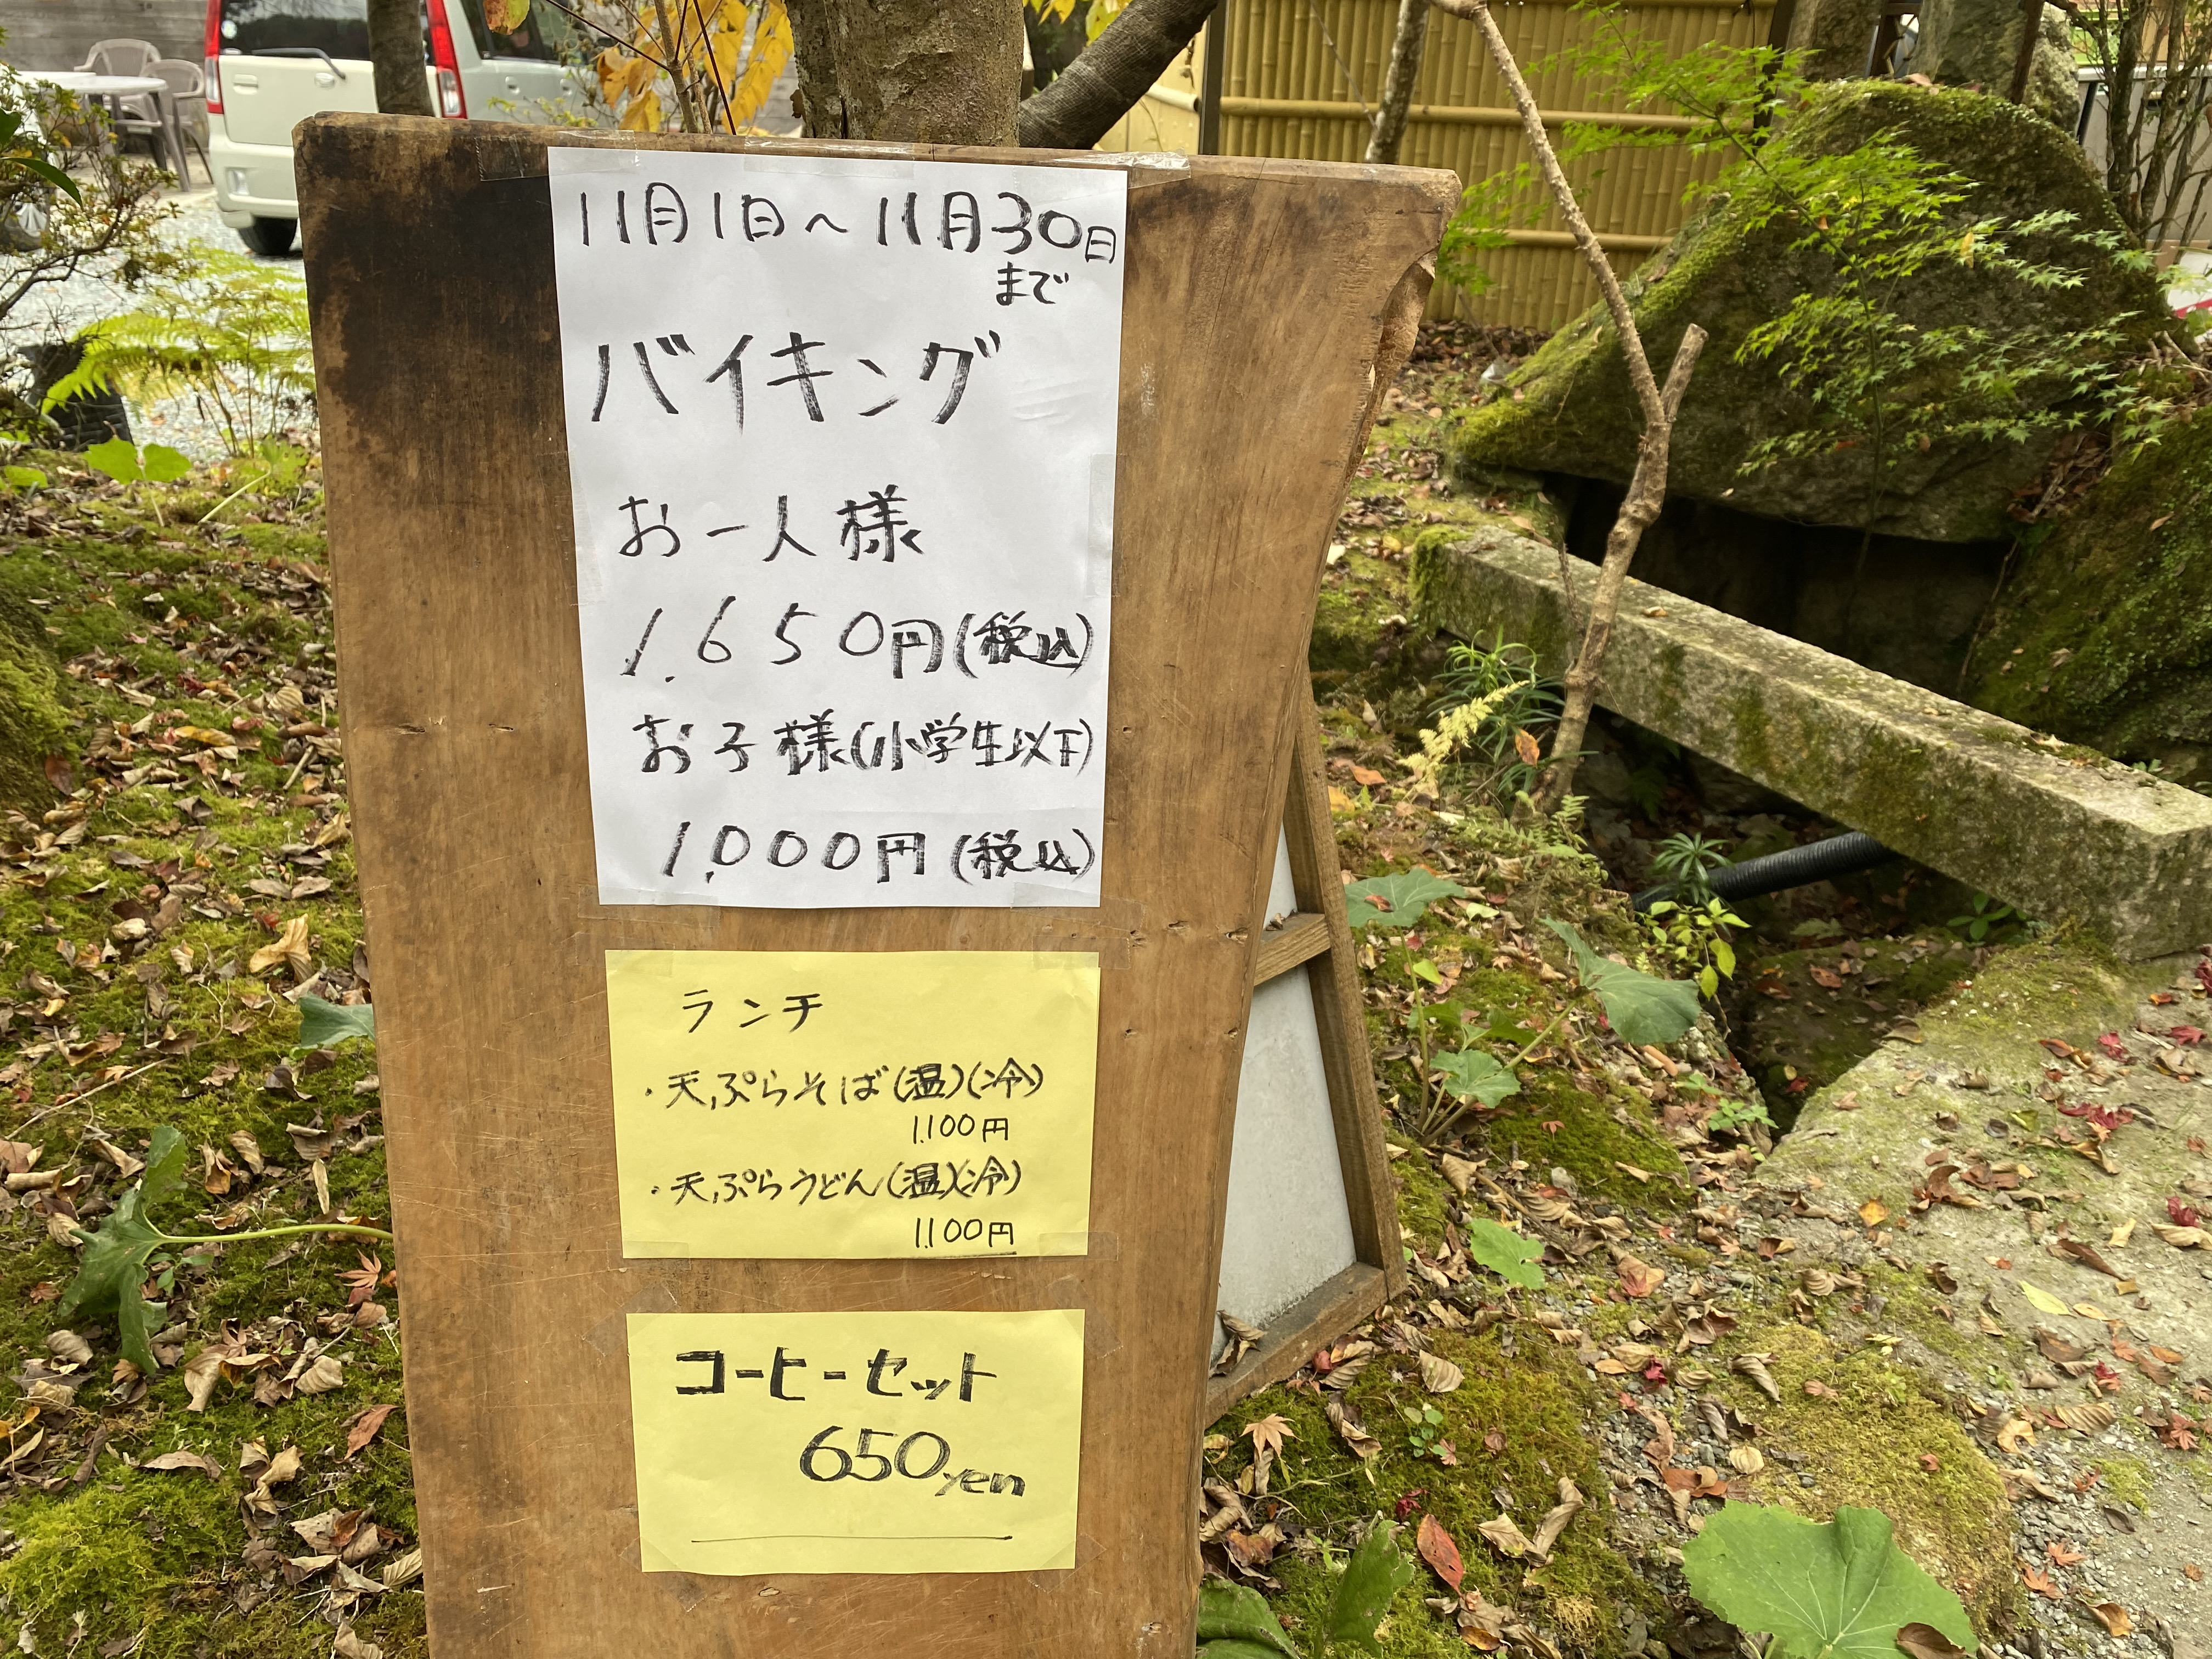 11月1日～11月30日
まで
バイキング
お一人様
1.650円(税込)
お子様(小学生以下)
1,000円(税込)
ランチ
・天ぷらそば(温)(冷)
1.100円
・天ぷらうどん(温)(冷)
1.100円
コーヒーセット
650yen